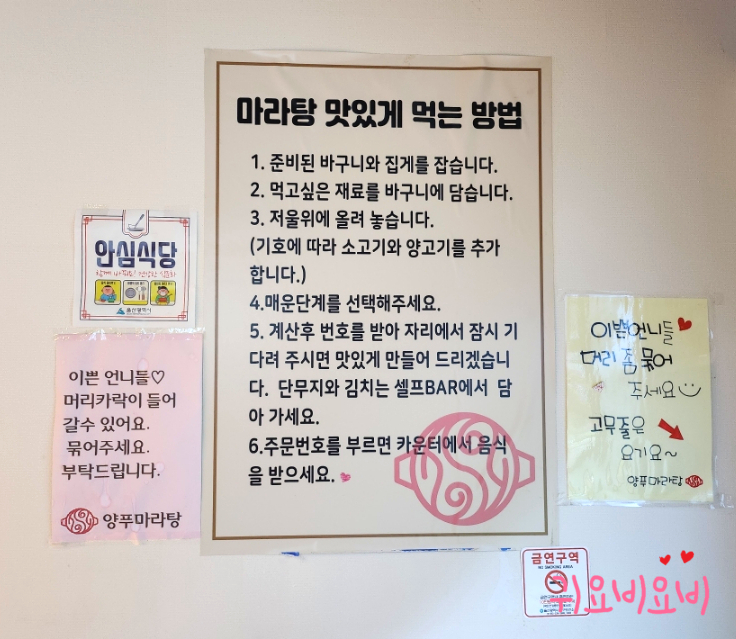 마라탕 맛있게 먹는 방법
1. 준비된 바구니와 집게를 잡습니다.
2. 먹고싶은 재료를 바구니에 담습니다.
3. 저울위에 올려 놓습니다.
(기호에 따라 소고기와 양고기를 추가
합니다.)
4.매운단계를 선택해주세요.
5. 계산후 번호를 받아 자리에서 잠시 기
다려 주시면 맛있게 만들어 드리겠습니
다. 단무지와 김치는 셀프BAR에서 담
아 가세요.
6.주문번호를 부르면 카운터에서 음식
을 받으세요.
안심식당
울산광역시
이쁜 언니들♡
머리카락이 들어
갈수 있어요.
묶어주세요.
부탁드립니다.
양푸마라탕
이쁜언니들
머리 좀 묶어
주세요
고무줄은
요기요~
양푸마라탕
금연구역
NO SMOKING AREA
위요비요비